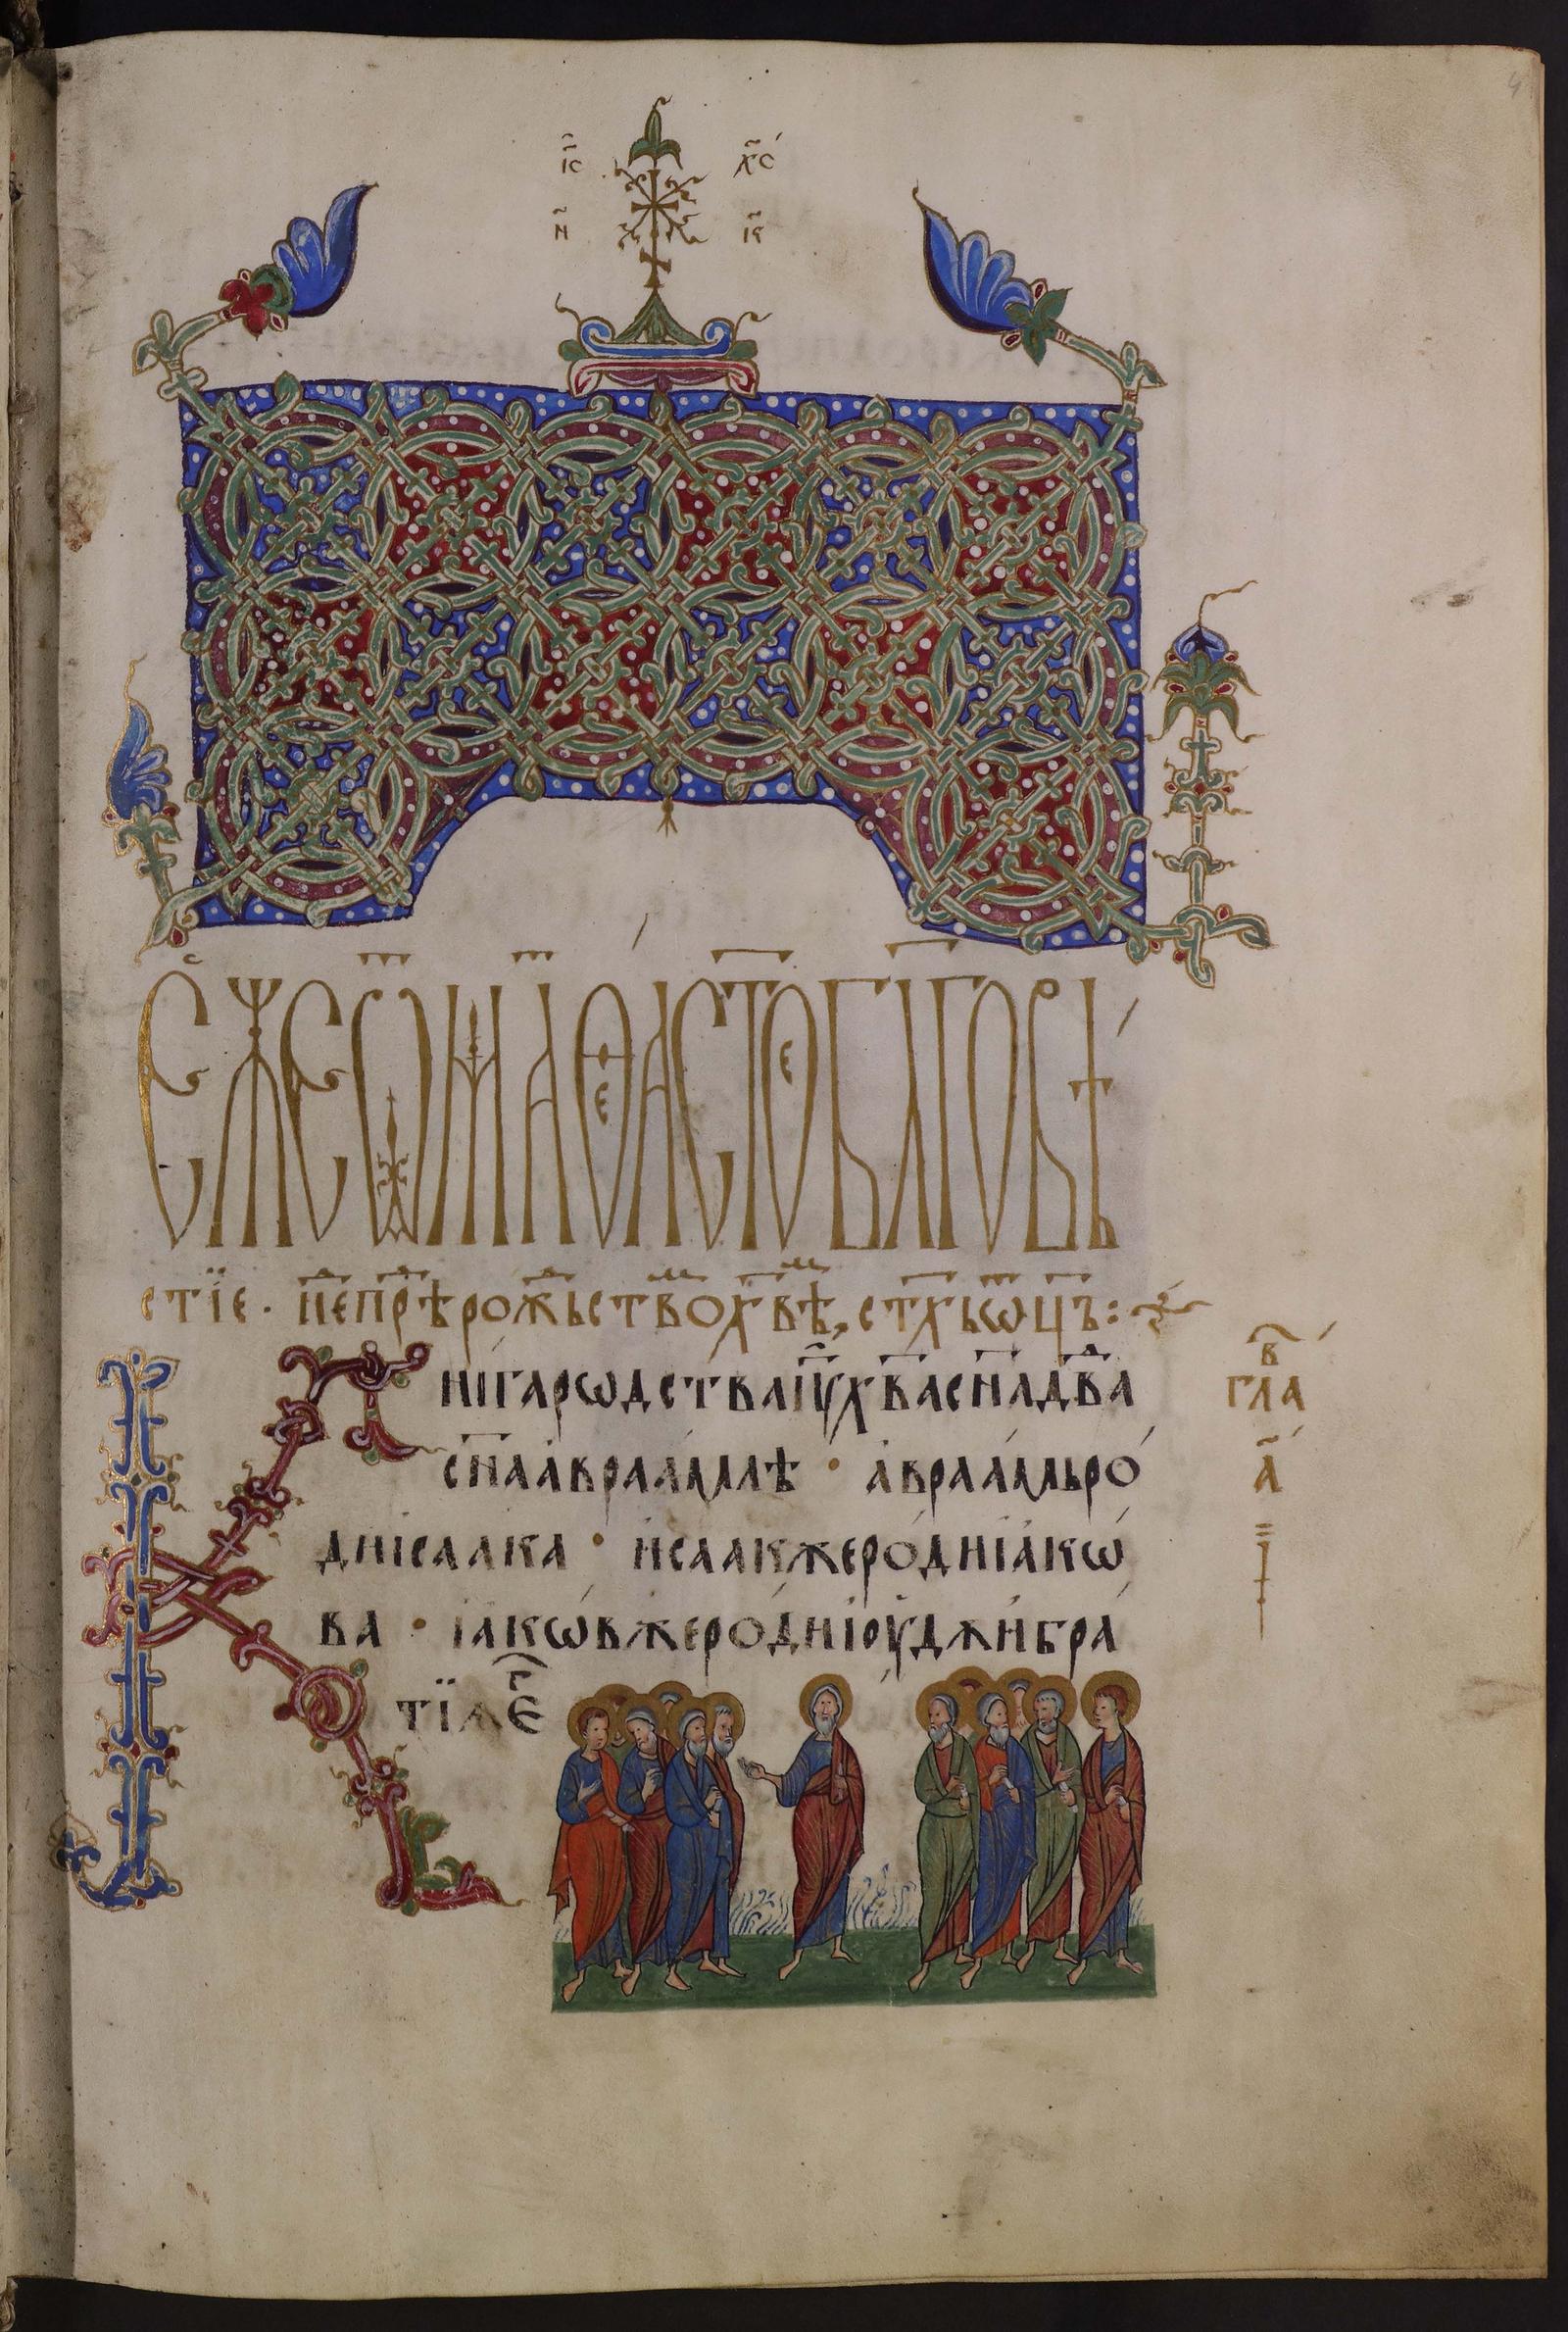 і҃с х҃с
н҃ и҃к
Еѵⷢ҇е ѿ Маѳеа ст҃ое бл҃говѣ
стїе · неⷣ прѣⷣ рожⷣьствоⷨ х҃вѣⷨ, ст҃хь ѿц҃ъ :
Книга рѡдства іу҃ х҃ва сн҃а дв҃да
сн҃а авраамлѣ · авраамь ро
ди ісаака · исаак же роди іакѡ
ва · іакѡв же роди іоудѫ и бра
тїѧ е҃г
гла҃в
а҃